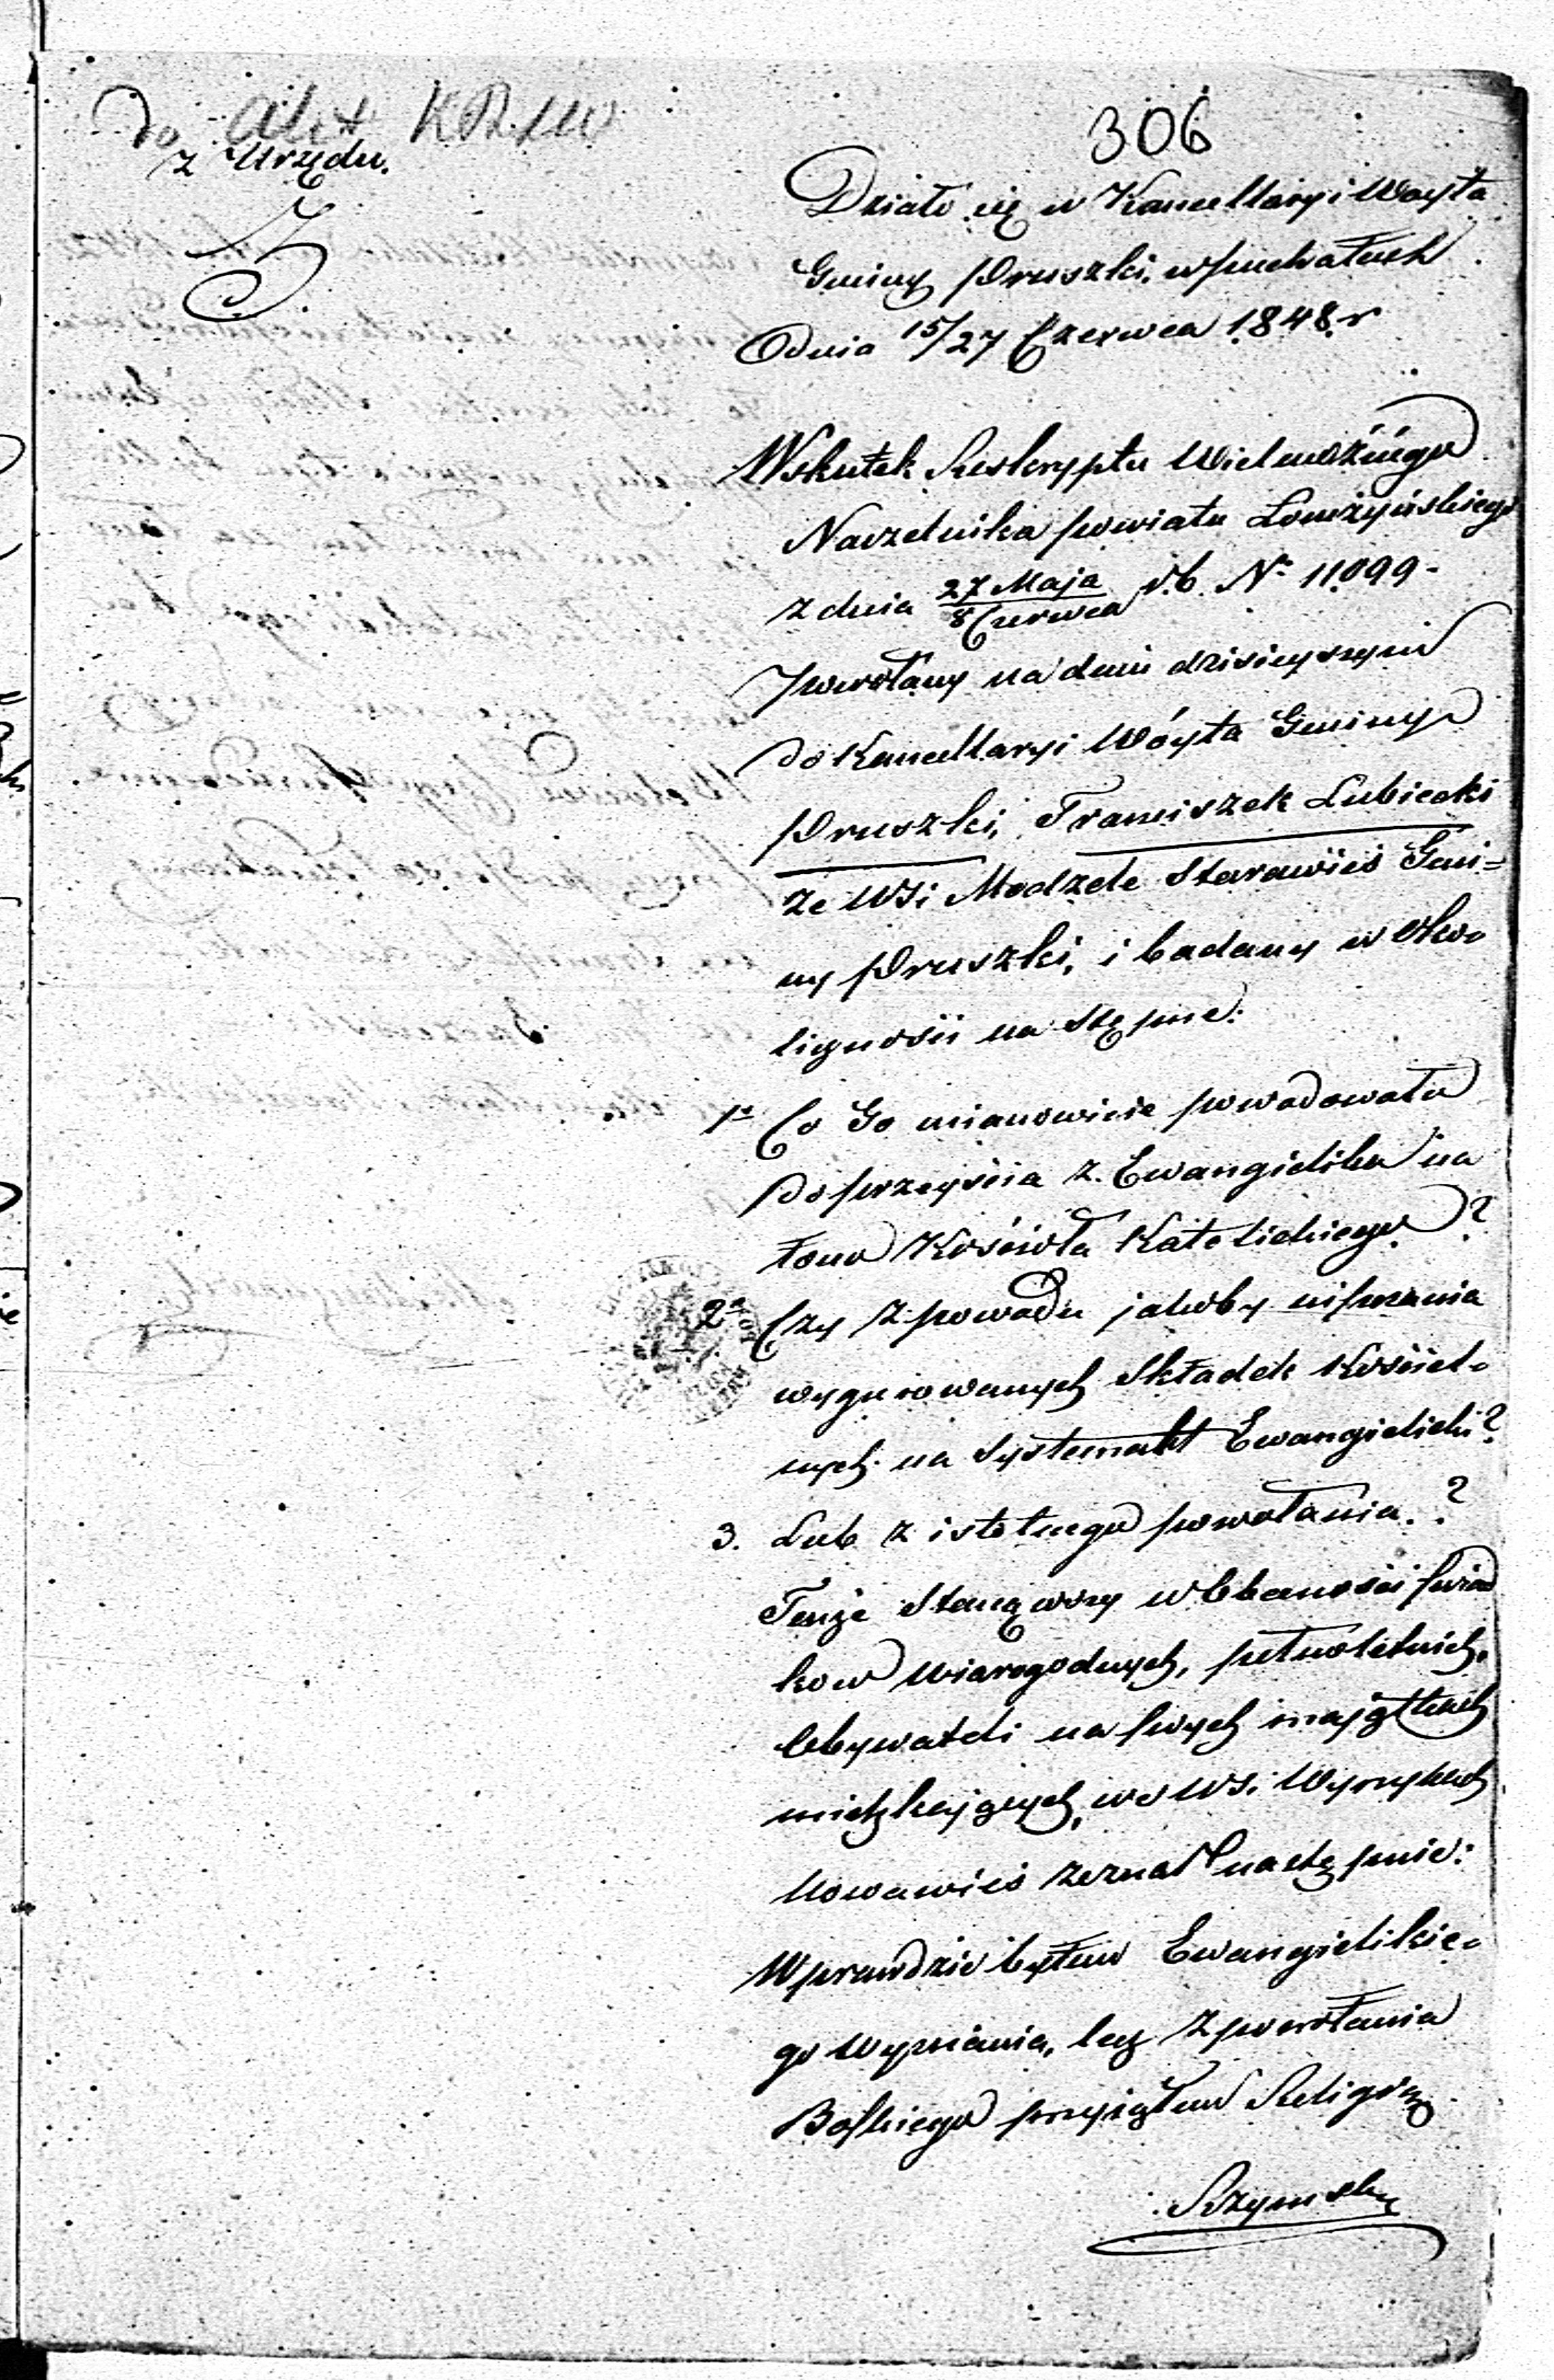 do Akt KRSW
z Urzędu.
306
Działo się w Kancellaryi Woyta
Gminy Pruszki, w Puchałach
Dnia 15/27 Czerwca 1848 r
Wskutek Reskryptu Wielmożnego
Naczelnika powiatu Łomżyńskiego
z dnia 27 Maja / 8 Czerwca r.b. Nº 11099 -
Powołany na dniu dzisieyszym
do Kancellaryi Wóyta Gminy
Pruszki, Franciszek Lubiecki
ze WSi Modzele Starawieś Gmi=
ny Pruszki, i badany w oko-
liczności na stępne:
1º Co Go mianowicie powodowało
do przeyścia z Ewangielika na
łono Kościoła Katolickiego?
2º Czy z powodu jakoby
wygurowanych Składek Kościel-
nych na Systemakt Ewangielicki?
3. Lub z istotnego powołania.?
Tenże Stanąwszy w Obecności świad
kow Wiarogodnych, pełnoletnich,
Obywateli na swych majątkach
mieszkających, we WSi Wyrzykach
Nowawieś zeznał następnie:
Wprawdzie byłem Ewangielickie-
go Wyznania, lecz z powołania
Boskiego przyiąłem Religią
Rzymską